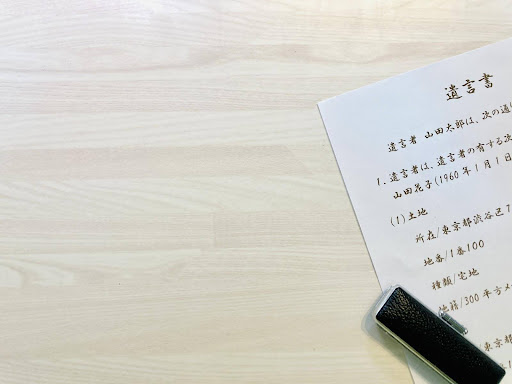 遺言書
遺言者 山田太郎は、次の通
1. 遺言者は、遺言者の有する次
山田花子(1960年1月1日
(1)土地
所在/東京都渋谷区
地番/1番100
種類/宅地
地積/300平方メ
東京都